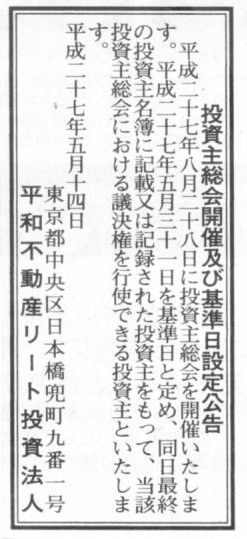 投資主総会開催及び基準日設定公告
平成二十七年八月二十八日に投資主総会を開催いたしま
す。平成二十七年五月三十一日を基準日と定め、同日最終
の投資主名簿に記載又は記録された投資主をもって、当該
投資主総会における議決権を行使できる投資主といたしま
す。
平成二十七年五月十四日
東京都中央区日本橋兜町九番一号
平和不動産リート投資法人